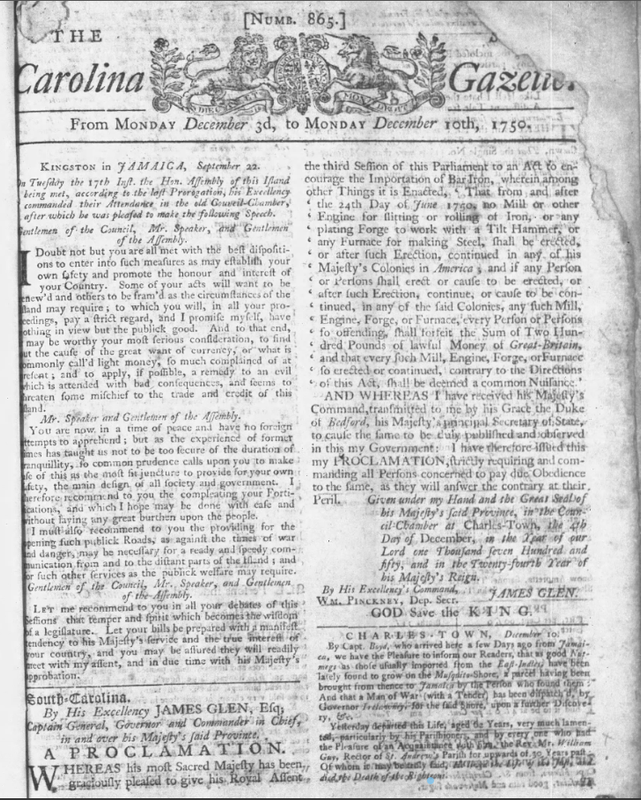 [NUMB. 865.]
THE
Carolina Gazette.
From MONDAY December 3d, to MONDAY December 10th, 1750.
KINGSTON in JAMAICA, September 22.
On Tuesday the 17th Inst. the Hon. Assembly of this Island
being met, according to the last Prorogation, his Excellency
commanded their Attendance in the old Council-Chamber,
after which he was pleased to make the following Speech.
Gentlemen of the Council, Mr. Speaker, and Gentlemen
of the Assembly.
I Doubt not but you are all met with the best dispositi-
ons to enter into such measures as may establish your
own safety and promote the honour and interest of
your Country. Some of your acts will want to be
new'd and others to be fram'd as the circumstances of the
land may require; to which you will, in all your pro-
ceedings, pay a strict regard, and I promise myself, have
nothing in view but the publick good. And to that end,
may be worthy your most serious consideration, to find
out the cause of the great want of currency, or what is
commonly call'd light money, so much complained of at
present; and to apply, if possible, a remedy to an evil
which is attended with bad consequences, and seems to
threaten some mischief to the trade and credit of this
land.
Mr. Speaker and Gentlemen of the Assembly.
You are now in a time of peace and have no foreign
attempts to apprehend; but as the experience of former
times has taught us not to be too secure of the duration of
tranquillity, so common prudence calls upon you to make
use of this as the most fit juncture to provide for your own
safety, the main design of all society and government. I
therefore recommend to you the compleating your Forti-
cations, and which I hope may be done with ease and
without laying any great burthen upon the people.
I must also recommend to you the providing for the
opening such publick Roads, as against the times of war
and danger, may be necessary for a ready and speedy com-
munication from and to the distant parts of the Island; and
for such other services as the publick welfare may require.
Gentlemen of the Council, Mr. Speaker, and Gentlemen
of the Assembly.
LET me recommend to you in all your debates of this
Sessions that temper and spirit which becomes the wisdom
of a legislature. Let your bills be prepared with a manifest
tendency to his Majesty's service and the true interest of
your country, and you may be assured they will readily
meet with my assent, and in due time with his Majesty's
approbation.
South-Carolina.
By His Excellency JAMES GLEN, Esq;
Captain-General, Governor and Commander in Chief,
in and over his Majesty's said Province.
A PROCLAMATION.
WHEREAS his most Sacred Majesty has been
graciously pleased to give his Royal Assent
the third Session of this Parliament to an Act to en-
courage the Importation of Bar Iron, wherein among
other Things it is Enacted, ' That from and after
' the 24th Day of June 1750, no Mill or other
' Engine for slitting or rolling of Iron, or any
' plating Forge to work with a Tilt Hammer, or
' any Furnace for making Steel, shall be erected,
' or after such Erection, continued in any of his
' Majesty's Colonies in America; and if any Person
' or Persons shall erect or cause to be erected, or
' after such Erection, continue, or cause to be con-
' tinued, in any of the said Colonies, any such Mill,
' Engine, Forge, or Furnace, every Person or Persons
' so offending, shall forfeit the Sum of Two Hun-
' dred Pounds of lawful Money of Great-Britain,
' and that every such Mill, Engine, Forge, or Furnace
' so erected or continued, contrary to the Directions
' of this Act, shall be deemed a common Nuisance.'
AND WHEREAS I have received his Majesty's
Command, transmitted to me by his Grace the Duke
of Bedford, his Majesty's principal Secretary of State,
to cause the same to be duly published and observed
in this my Government: I have therefore issued this
my PROCLAMATION, strictly requiring and com-
manding all Persons concerned to pay due Obedience
to the same, as they will answer the contrary at their
Peril. Given under my Hand and the Great Seal of
his Majesty's said Province, in the Coun-
cil-Chamber at Charles-Town, the 4th
Day of December, in the Year of our
Lord one Thousand seven Hundred and
fifty, and in the Twenty-fourth Year of
his Majesty's Reign.
By His Excellency's Command,
JAMES GLEN.
WM. PINCKNEY, Dep. Secr.
GOD Save the KING.
CHARLES-TOWN, December 10.
By Capt. Boyd, who arrived here a few Days ago from Jamai-
ca, we have the Pleasure to inform our Readers, that as good Nut-
megs as those usually imported from the East-Indies have been
lately found to grow on the Musquito-Shore, a parcel having been
brought from thence to Jamaica by the Person who found them:
And that a Man of War (with a Tender) has been dispatch'd, by
Governor for the said Shore, upon a further Discove-
ry, &c.
Yesterday departed this Life, aged 62 Years, very much lamen-
ted, particularly by his Parishioners, and by every one who had
the Pleasure of an Acquaintance with him, the Rev. Mr. William
Guy, Rector of St. Andrew's Parish for upwards of 30 Years past.
Of whom it may be truly said,
died the Death of the Righteous.